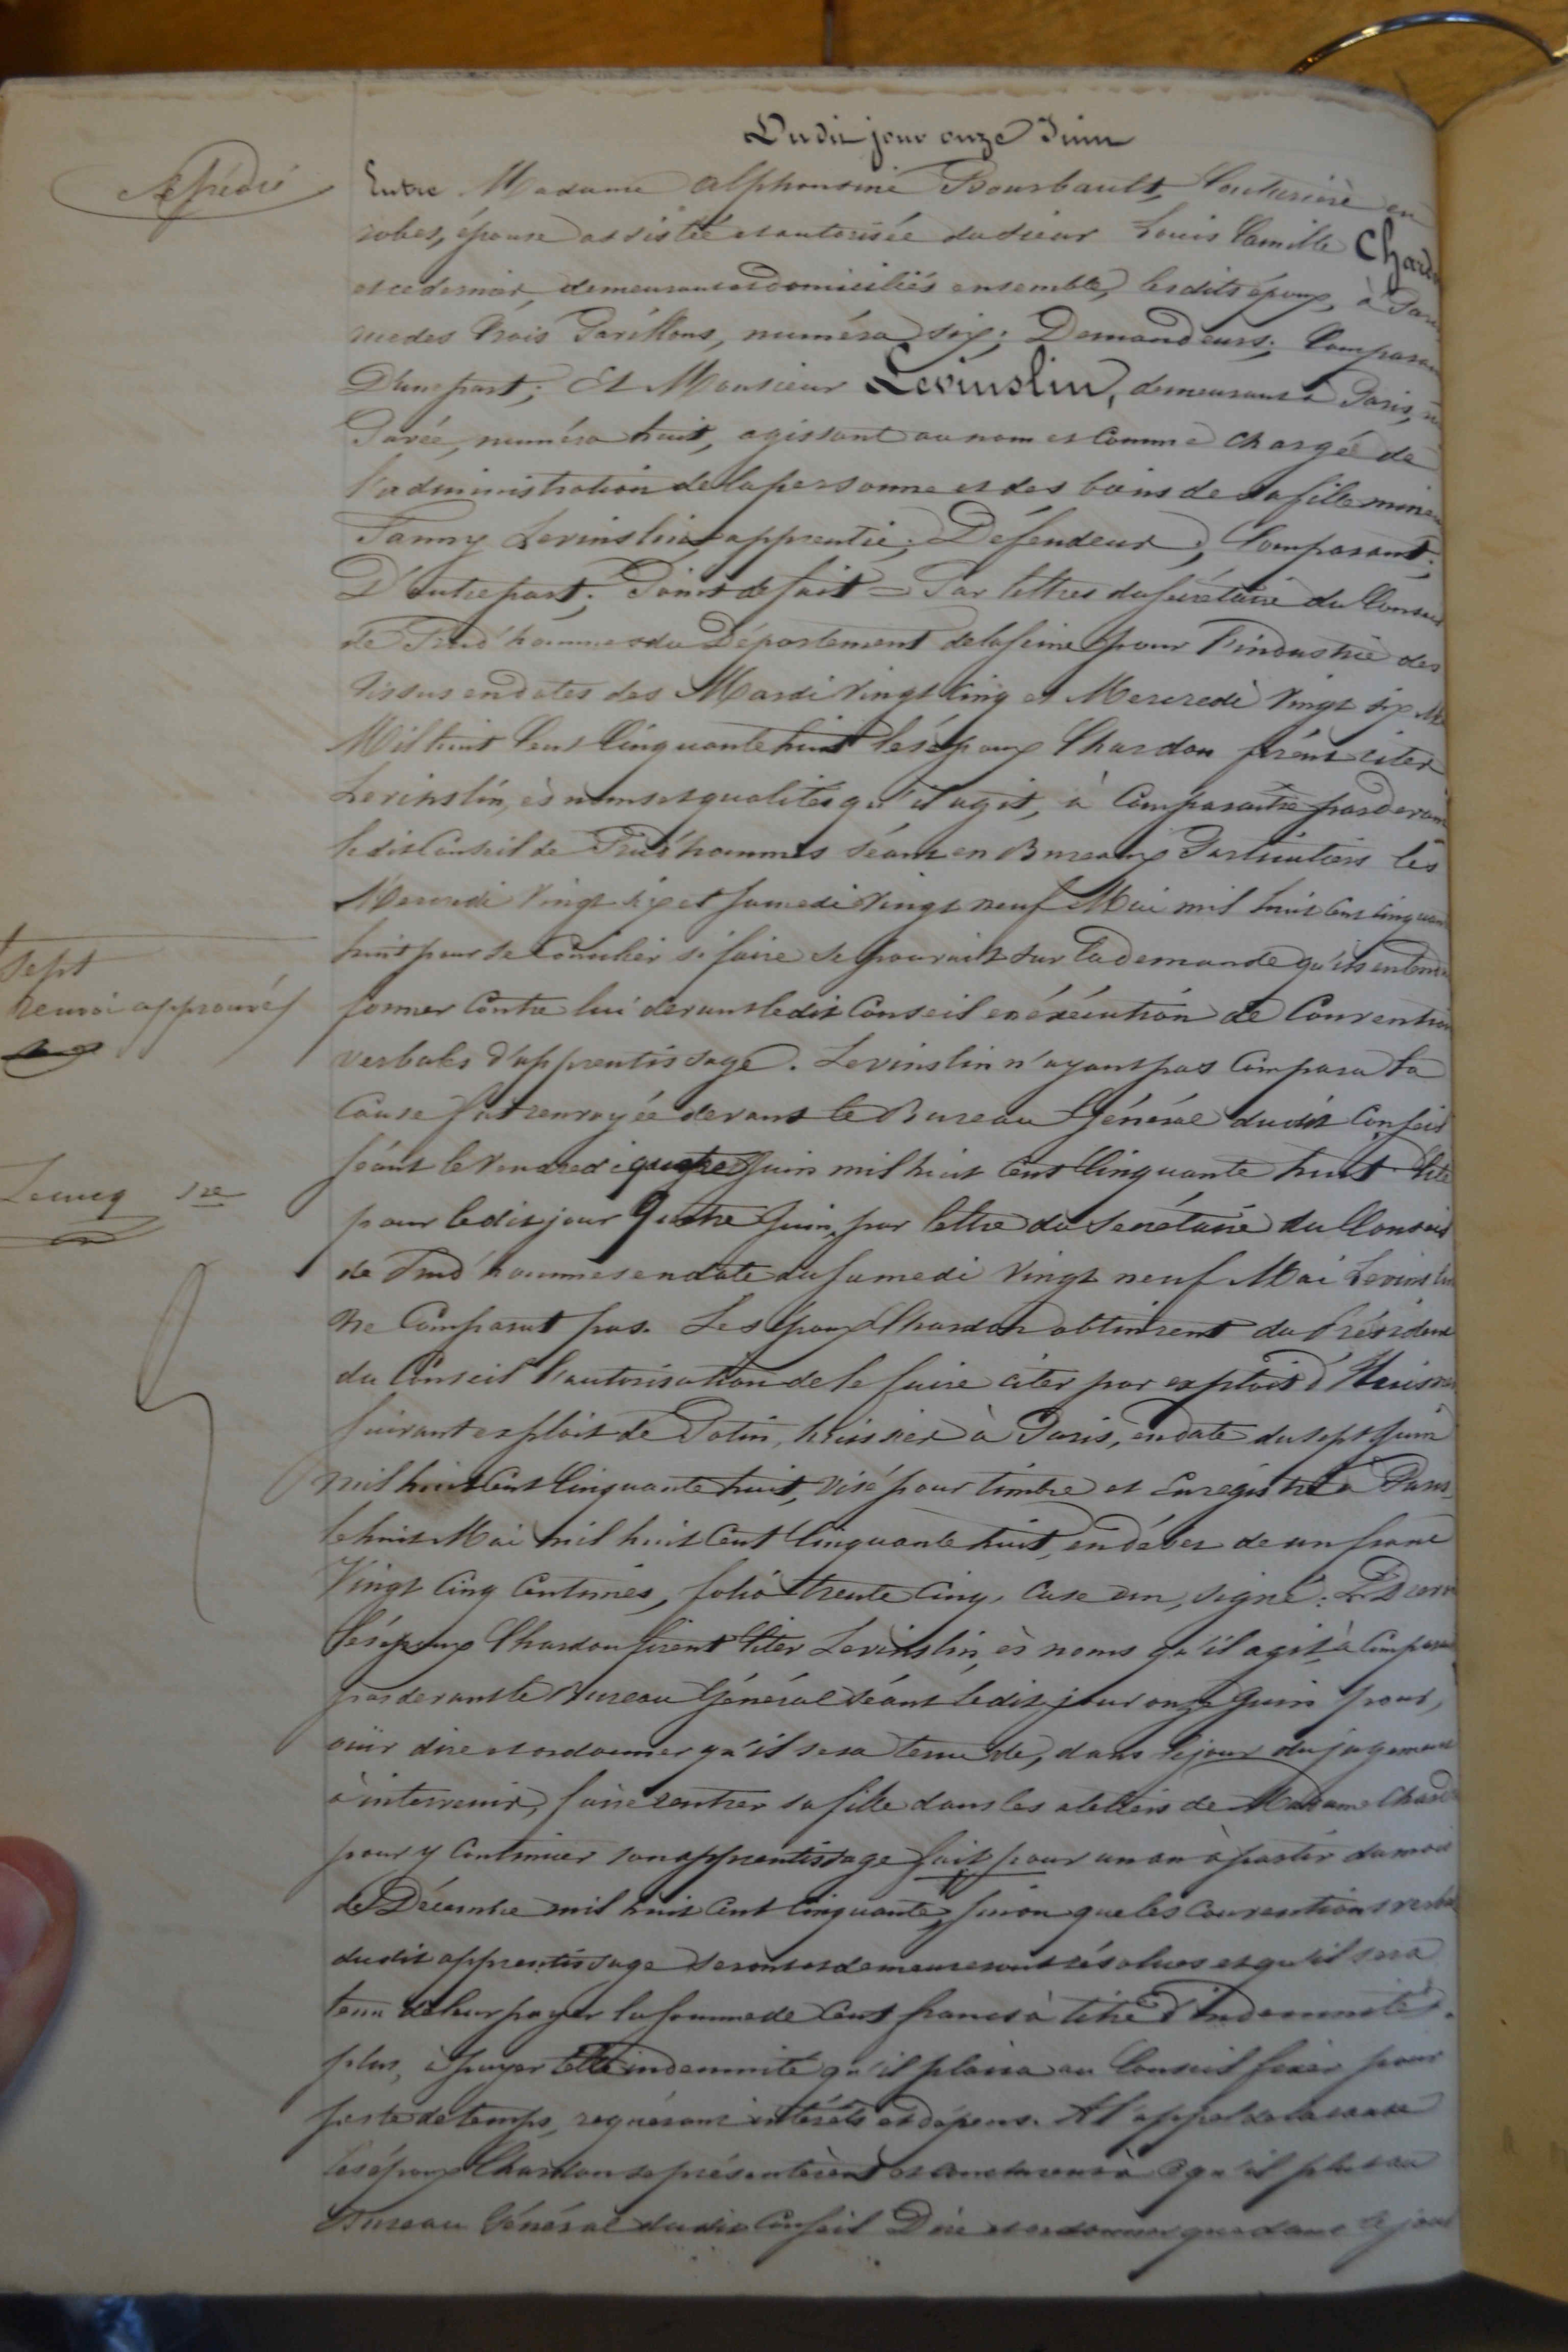 Du dit jour onze Juin
Expédié
Entre Madame Alphonsine Boursbault, Couturière en
robes, épouse assistée et autorisée du sieur Louis Camille Chard
et ce dernier, demeurant et domiciliés ensemble, les dits époux, à Par
rue des Trois Pavillons, numéro six; Demandeurs; Comparan
D'une part; Et Monsieur Levinslin, demeurant à Paris, ru
Pavée, numéro huit, agissant au nom et Comme chargé de
l'administration de la personne et des biens de sa fille mine
Fanny Levinslin, apprentie; Défendeur; Comparant;
D'autre part; Point de fait = Par lettres du secrétaire du Conseil
de Prud'hommes du Département de la Seine pour l'industrie des
Tissus en dates des Mardi vingt cinq et Mercredi vingt six Ma
Mil huit Cent Cinquante huit les époux Chardon firent citer
Levinslin, ès noms et qualités qu'il agit, à Comparaître par devan
le dit Conseil de Prud'hommes séant en Bureaux Particuliers les
Mercredi vingt six et samedi vingt neuf Mai mil huit Cent cinquan
huit pour se Concilier si faire se pouvait sur la demande qu'ils entend
former Contre lui devant le dit Conseil en éxécution de Convention
verbales d'apprentissage. Levinslin n'ayant pas Comparu la
Cause fut renvoyée devant le Bureau Général du dit Conseil
séant le Vendredi quatre Juin mil huit Cent Cinquante huit. Cité
pour le dit jour Quatre Juin, par lettre du Secrétaire du Conseil
de Prud'hommes en date du samedi vingt neuf Mai Levinslin
ne Comparut pas. Les époux Chardon obtinrent du Président
du Conseil l'autorisation de le faire citer par exploit d'Huissier
suivant exploit de Potin, huissier à Paris, en date du sept Juin
mil huit Cent Cinquante huit, visé pour timbre et Enregistré à Paris,
le huit Mai mil huit Cent Cinquante huit, en débet de un franc
Vingt Cinq Centimes, folio trente Cinq, Case un, signé:
les époux Chardon firent Citer Levinslin, ès noms qu'il agit à Compara
par devant le Bureau Général séant le dit jour onze Juin pour,
ouïr dire et ordonner qu'il sera tenu de, dans le jour du jugement
à intervenir, faire rentrer sa fille dans les ateliers de Madame Chard
pour y Continuer son apprentissage fait pour un an à partir du mois
de Décembre mil huit Cent Cinquante, sinon que les Conventions verbal
du dit apprentissage seront et demeureront résolues et qu'il sera
tenu de leur payer la somme de Cent francs à titre d'indemnité.
plus, à payer telle indemnité qu'il plaira au Conseil fixer pour
perte de temps, requérant intérêts et dépens. A l'appel de la cause
les époux Chardon se présentèrent et conclurent à ce qu'il plut au
Bureau Général du dit Conseil Dire et ordonner que dans le jour
sept
renvoi approuvé
Lecucq Sre